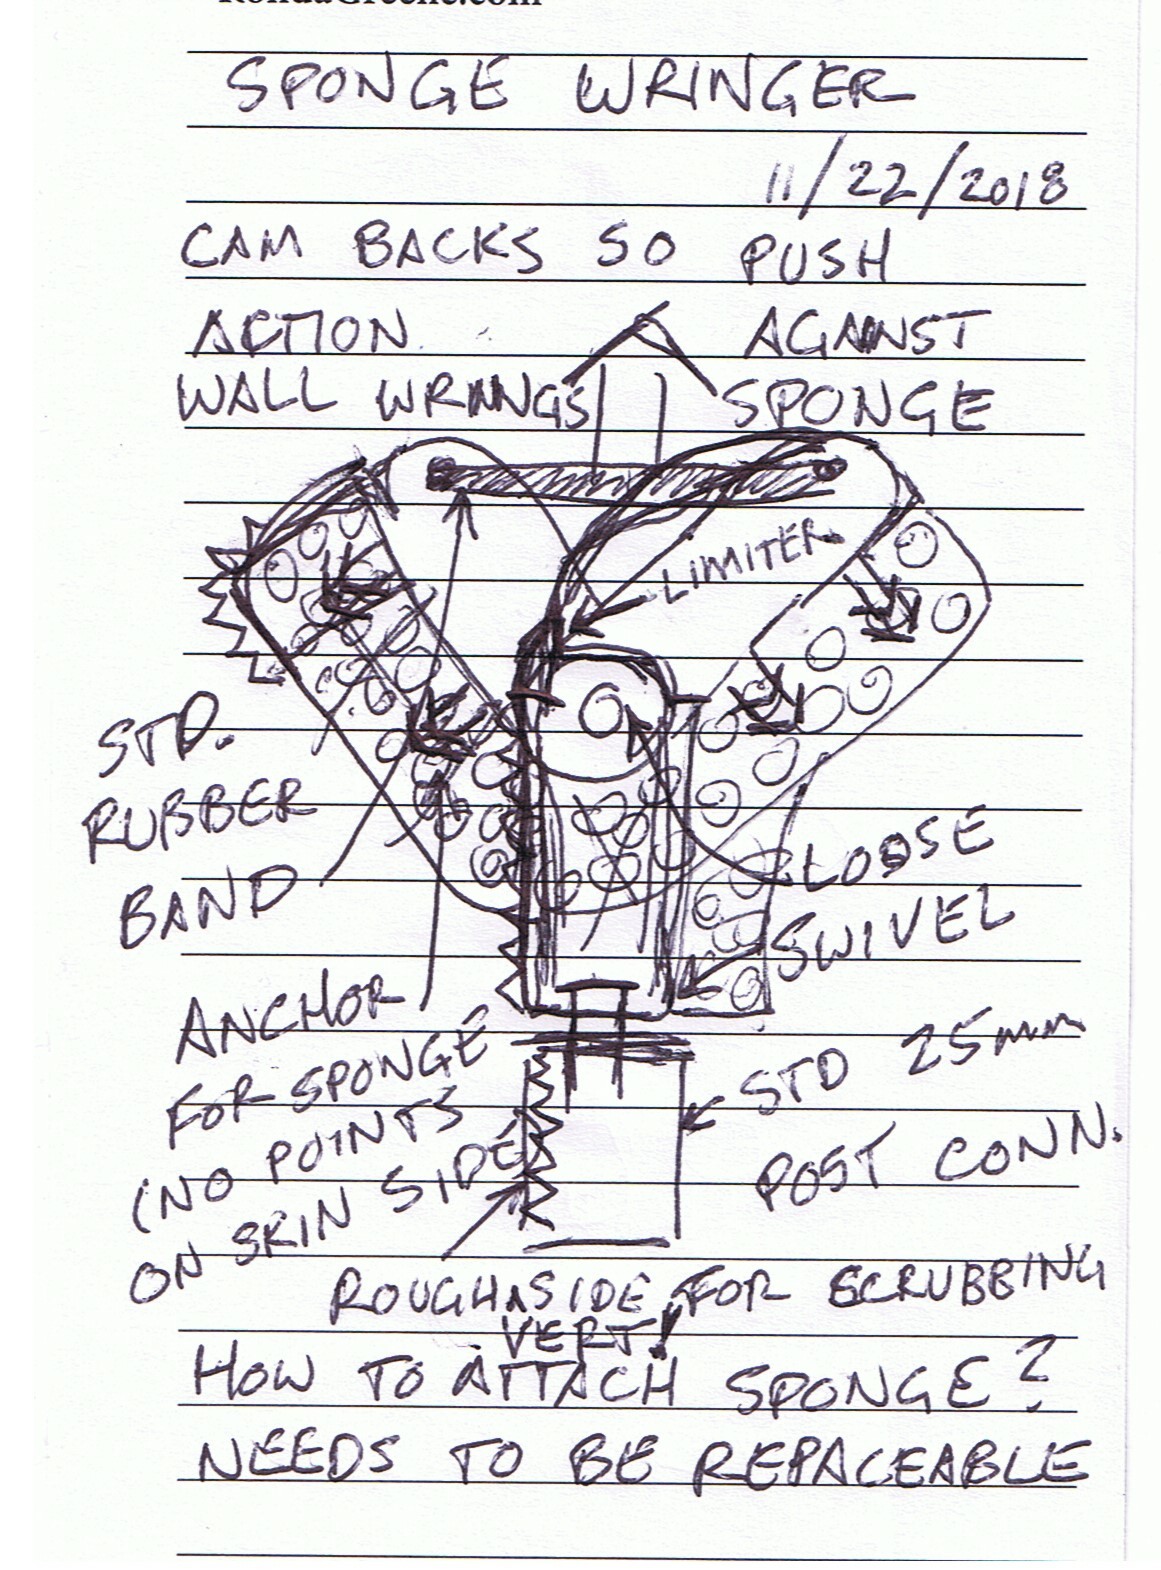 RondaGreene.com
SPONGE WRINGER
11/22/2018
CAM BACKS SO PUSH
ACTION AGAINST
WALL WRINGS SPONGE
LIMITER
STD.
RUBBER
BAND
LOOSE
SWIVEL
ANCHOR
FOR SPONGE
(NO POINTS
ON SKIN SIDE
STD 25mm
POST CONN.
ROUGH SIDE FOR SCRUBBING
VERT!
HOW TO ATTACH SPONGE?
NEEDS TO BE REPACEABLE